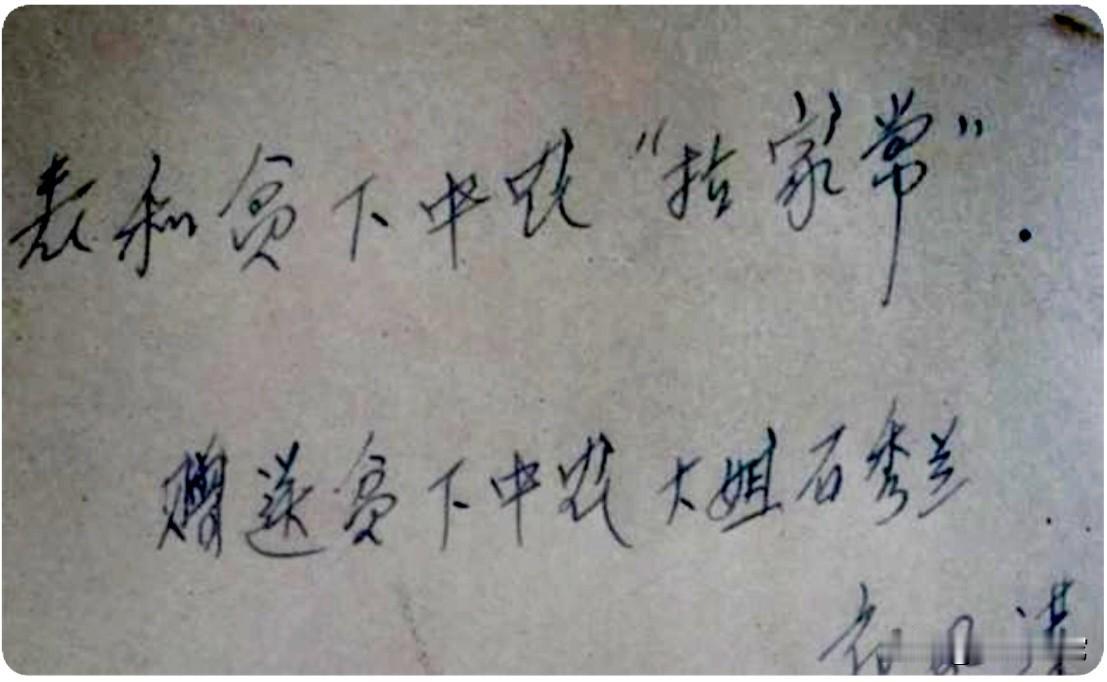 和贫下中农“拉家常”.
赠送贫下中农大姐石秀兰